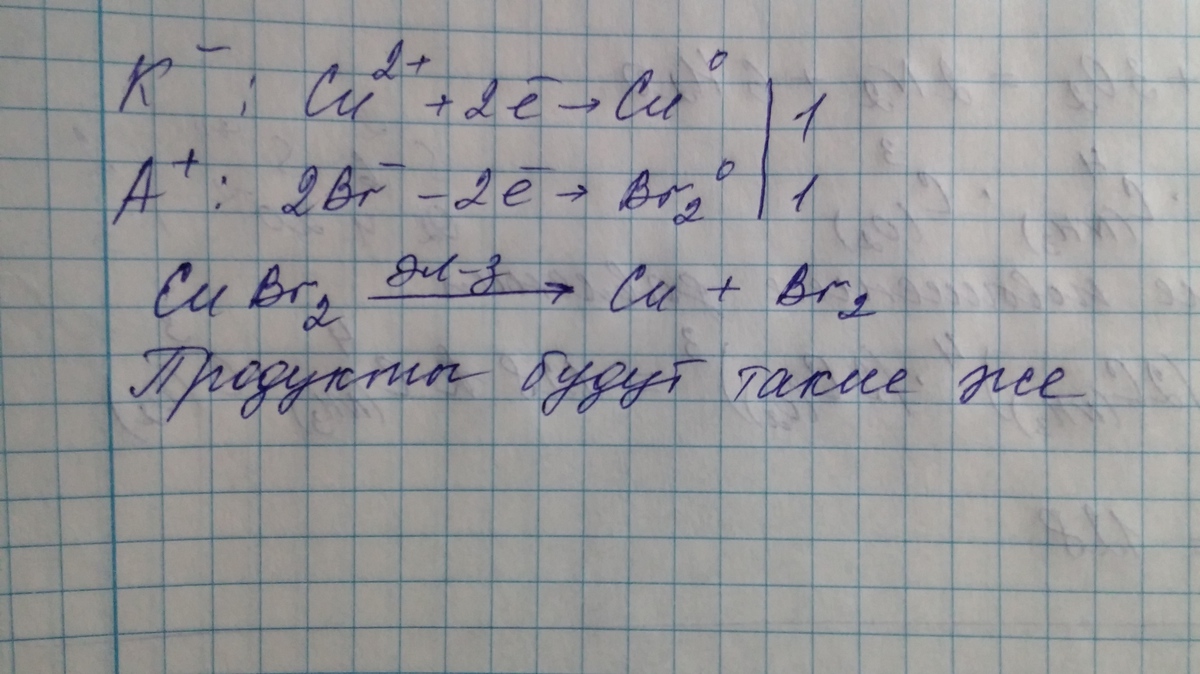 K⁻ : Cu²⁺ + 2ē → Cu⁰ | 1
A⁺ : 2Br⁻ – 2ē → Br₂⁰ | 1
CuBr₂ эл-з → Cu + Br₂
Продукты будут такие же